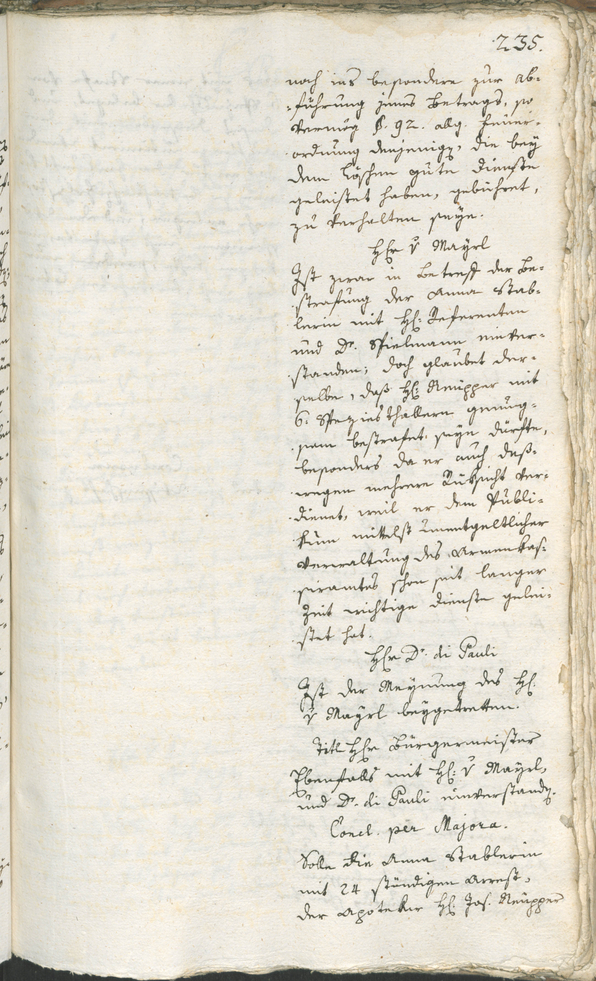 235.
noch ins besondere zur Ab-
führung jenes Betrags, so
vermög §. 92. allg. Feuer-
ordnung denjenigen, die bey
dem Löschen gute Dienste
geleistet haben, gebühret,
zu verhalten seye.
Hr v Mayrl
Ist zwar in Betreff der Be-
strafung der Anna Stab-
lerin mit H: Referenten
und Dr. Spielmann einver-
standen; doch glaubet der-
selbe, daß H: Neupper mit
6. Speziesthallern genug-
sam bestrafet seyn dürfte,
besonders da er auch deß-
wegen mehrere Rüksicht ver-
dienet, weil er dem Publi-
kum mittelst unentgeltlicher
Verwaltung des Armenkas-
sieramtes schon seit langer
Zeit wichtige Dienste gelei-
stet hat.
Hr Dr. di Pauli
Ist der Meynung des H:
v Mayrl beygetretten.
Titl Hr Bürgermeister
Ebenfalls mit H: v Mayrl,
und Dr. di Pauli einverstanden.
Concl. per Majora.
Solle die Anna Stablerin
mit 24 stündigen Arrest,
der Apoteker H: Jos. Neupper